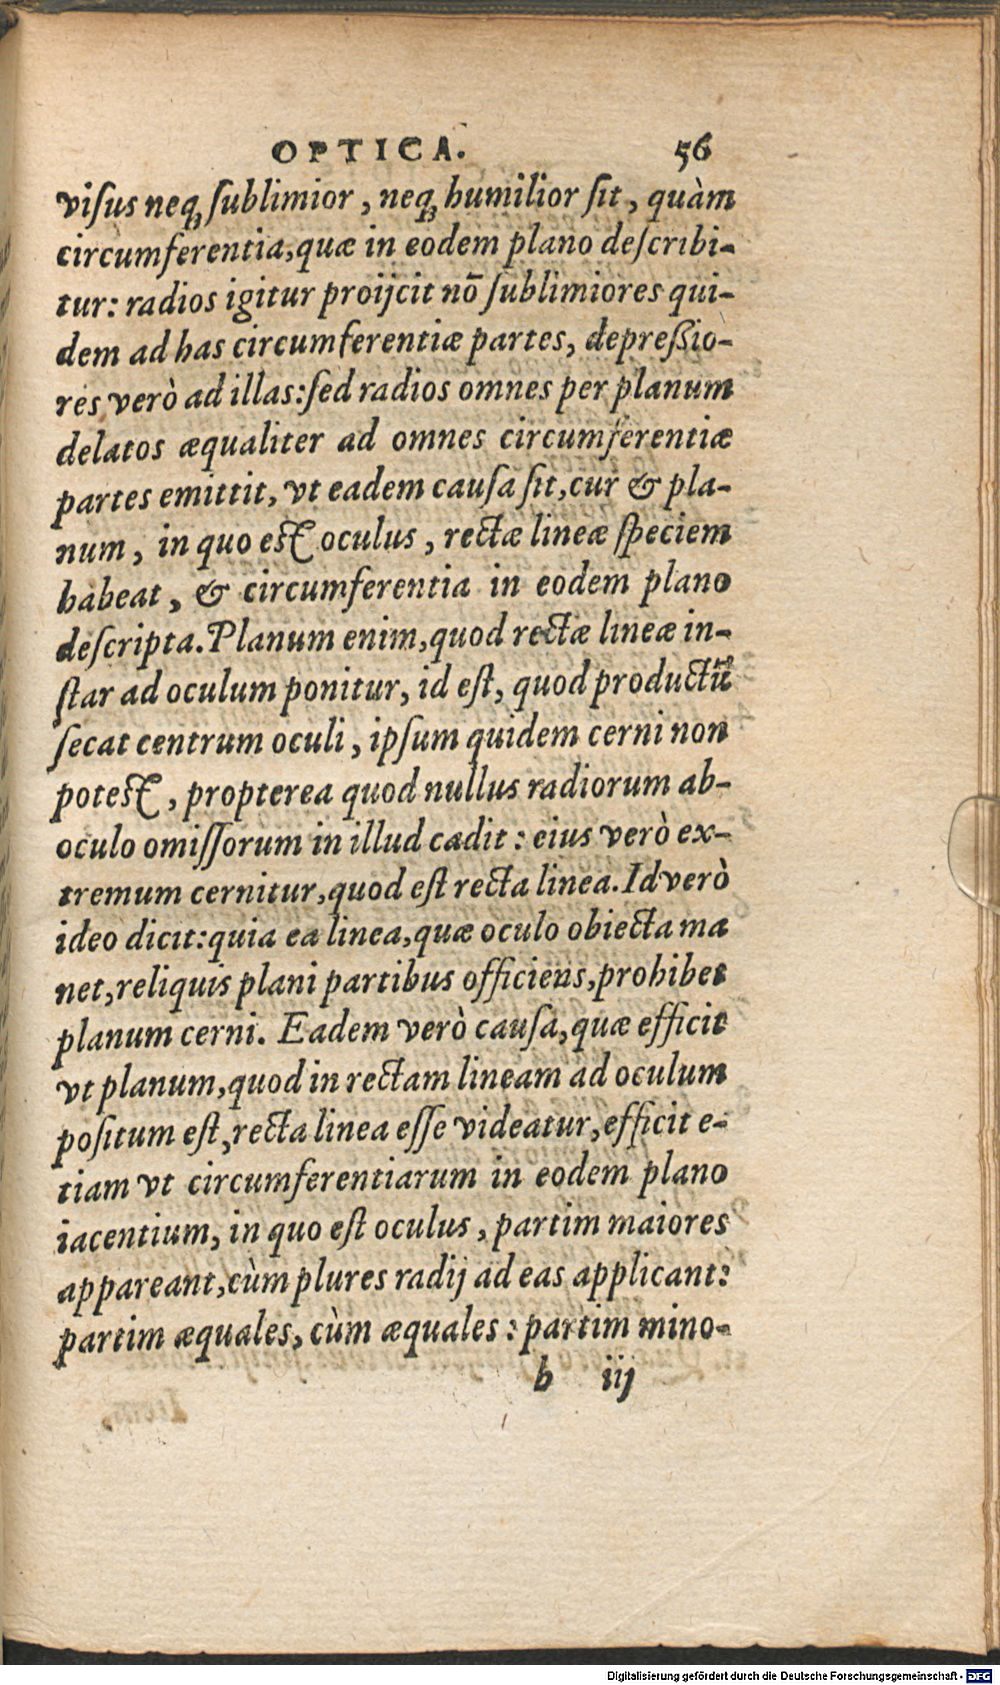 OPTICA. 56
viſus neq; ſublimior, neq; humilior ſit, quàm
circumferentia,quæ in eodem plano deſcribi-
tur: radios igitur proijcit nō ſublimiores qui-
dem ad has circumferentiæ partes, depreßio-
res verò ad illas:ſed radios omnes per planum
delatos æqualiter ad omnes circumferentiæ
partes emittit, vt eadem cauſa ſit,cur & pla-
num, in quo est oculus, rectæ lineæ ſpeciem
habeat, & circumferentia in eodem plano
deſcripta. Planum enim,quod rectæ lineæ in-
ſtar ad oculum ponitur, id eſt, quod productū
ſecat centrum oculi, ipſum quidem cerni non
potest, propterea quod nullus radiorum ab-
oculo omiſſorum in illud cadit: eius verò ex-
tremum cernitur,quod eſt recta linea. Id verò
ideo dicit:quia ea linea,quæ oculo obiecta ma
net,reliquis plani partibus officiens,prohibet
planum cerni. Eadem verò cauſa,quæ efficit
vt planum,quod in rectam lineam ad oculum
poſitum eſt,recta linea eſſe videatur,efficit e-
tiam vt circumferentiarum in eodem plano
iacentium, in quo eſt oculus, partim maiores
appareant,cùm plures radij ad eas applicant:
partim æquales, cùm æquales: partim mino-
b iij
Digitalisierung gefördert durch die Deutsche Forschungsgemeinschaft - DFG